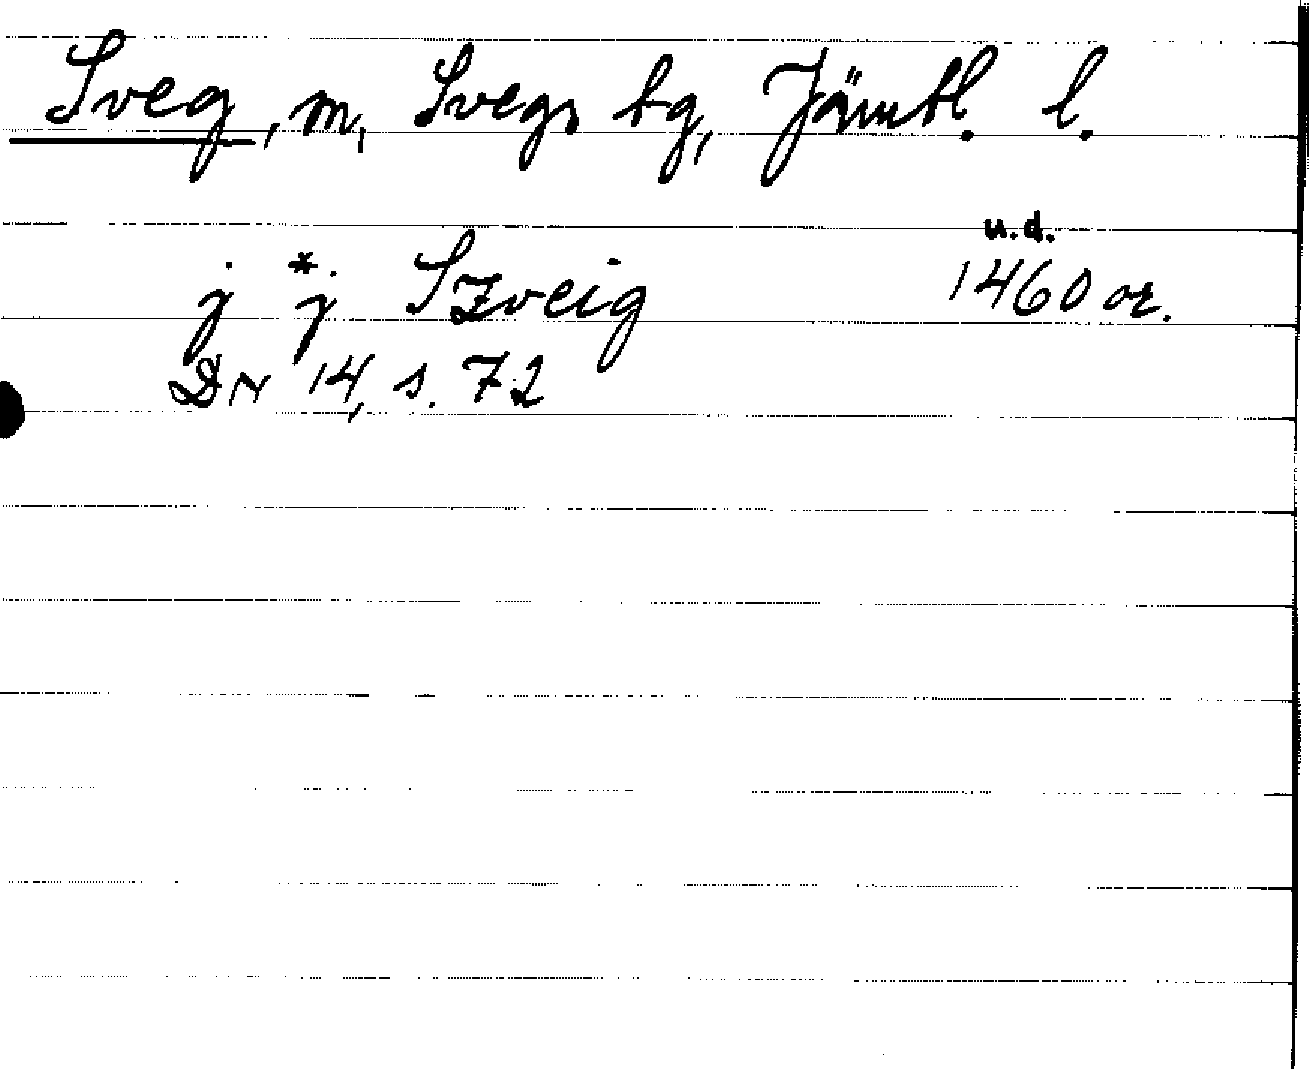 Sveg, m, Svegs tg, Jämtl. l.
u.d.
j *j Szveig 1460 or.
DN 14, s. 72